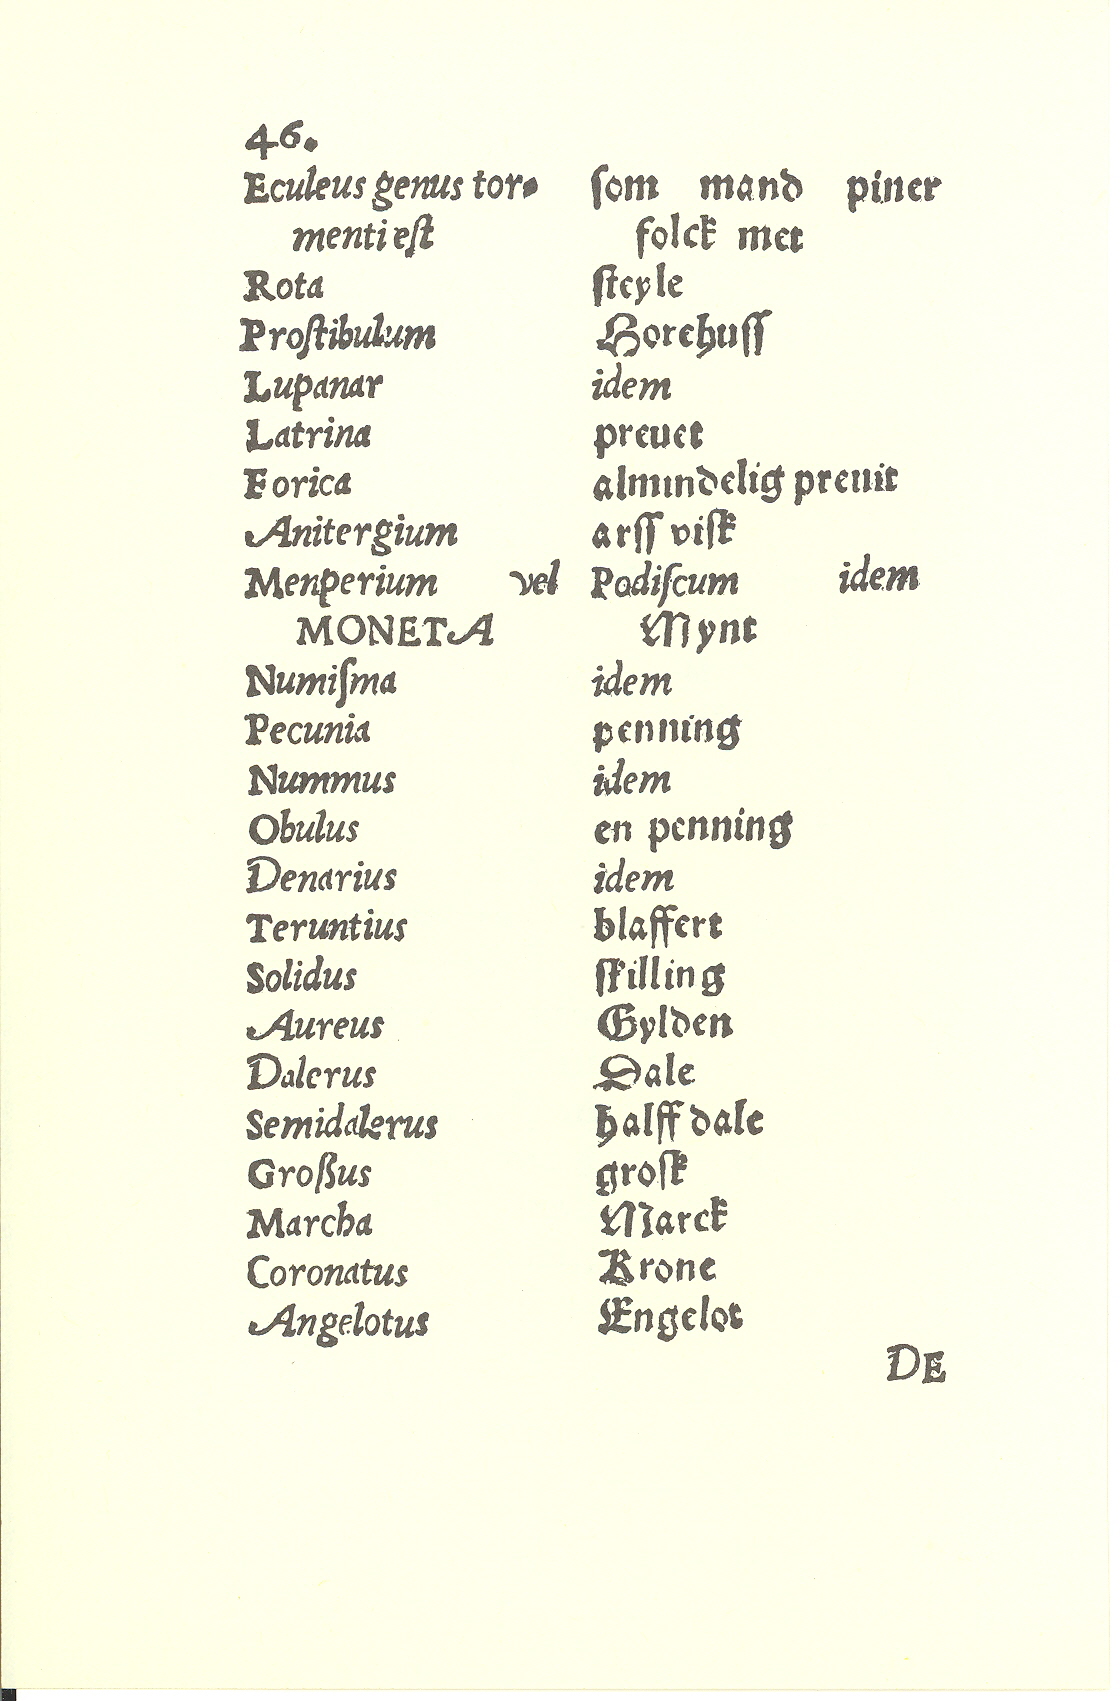 46.
Eculeus genus tor- ſom mand piner
menti eſt folck met
Rota ſteyle
Proſtibulum Horehuſſ
Lupanar idem
Latrina preuet
Forica almindelig preuit
Anitergium arſſ viſk
Menperium vel Podiſcum idem
MONETA Mynt
Numiſma idem
Pecunia penning
Nummus idem
Obulus en penning
Denarius idem
Teruntius blaffert
Solidus ſkilling
Aureus Gylden
Dalerus Dale
Semidalerus halff dale
Großus groſk
Marcha Marck
Coronatus Krone
Angelotus Engelot
DE